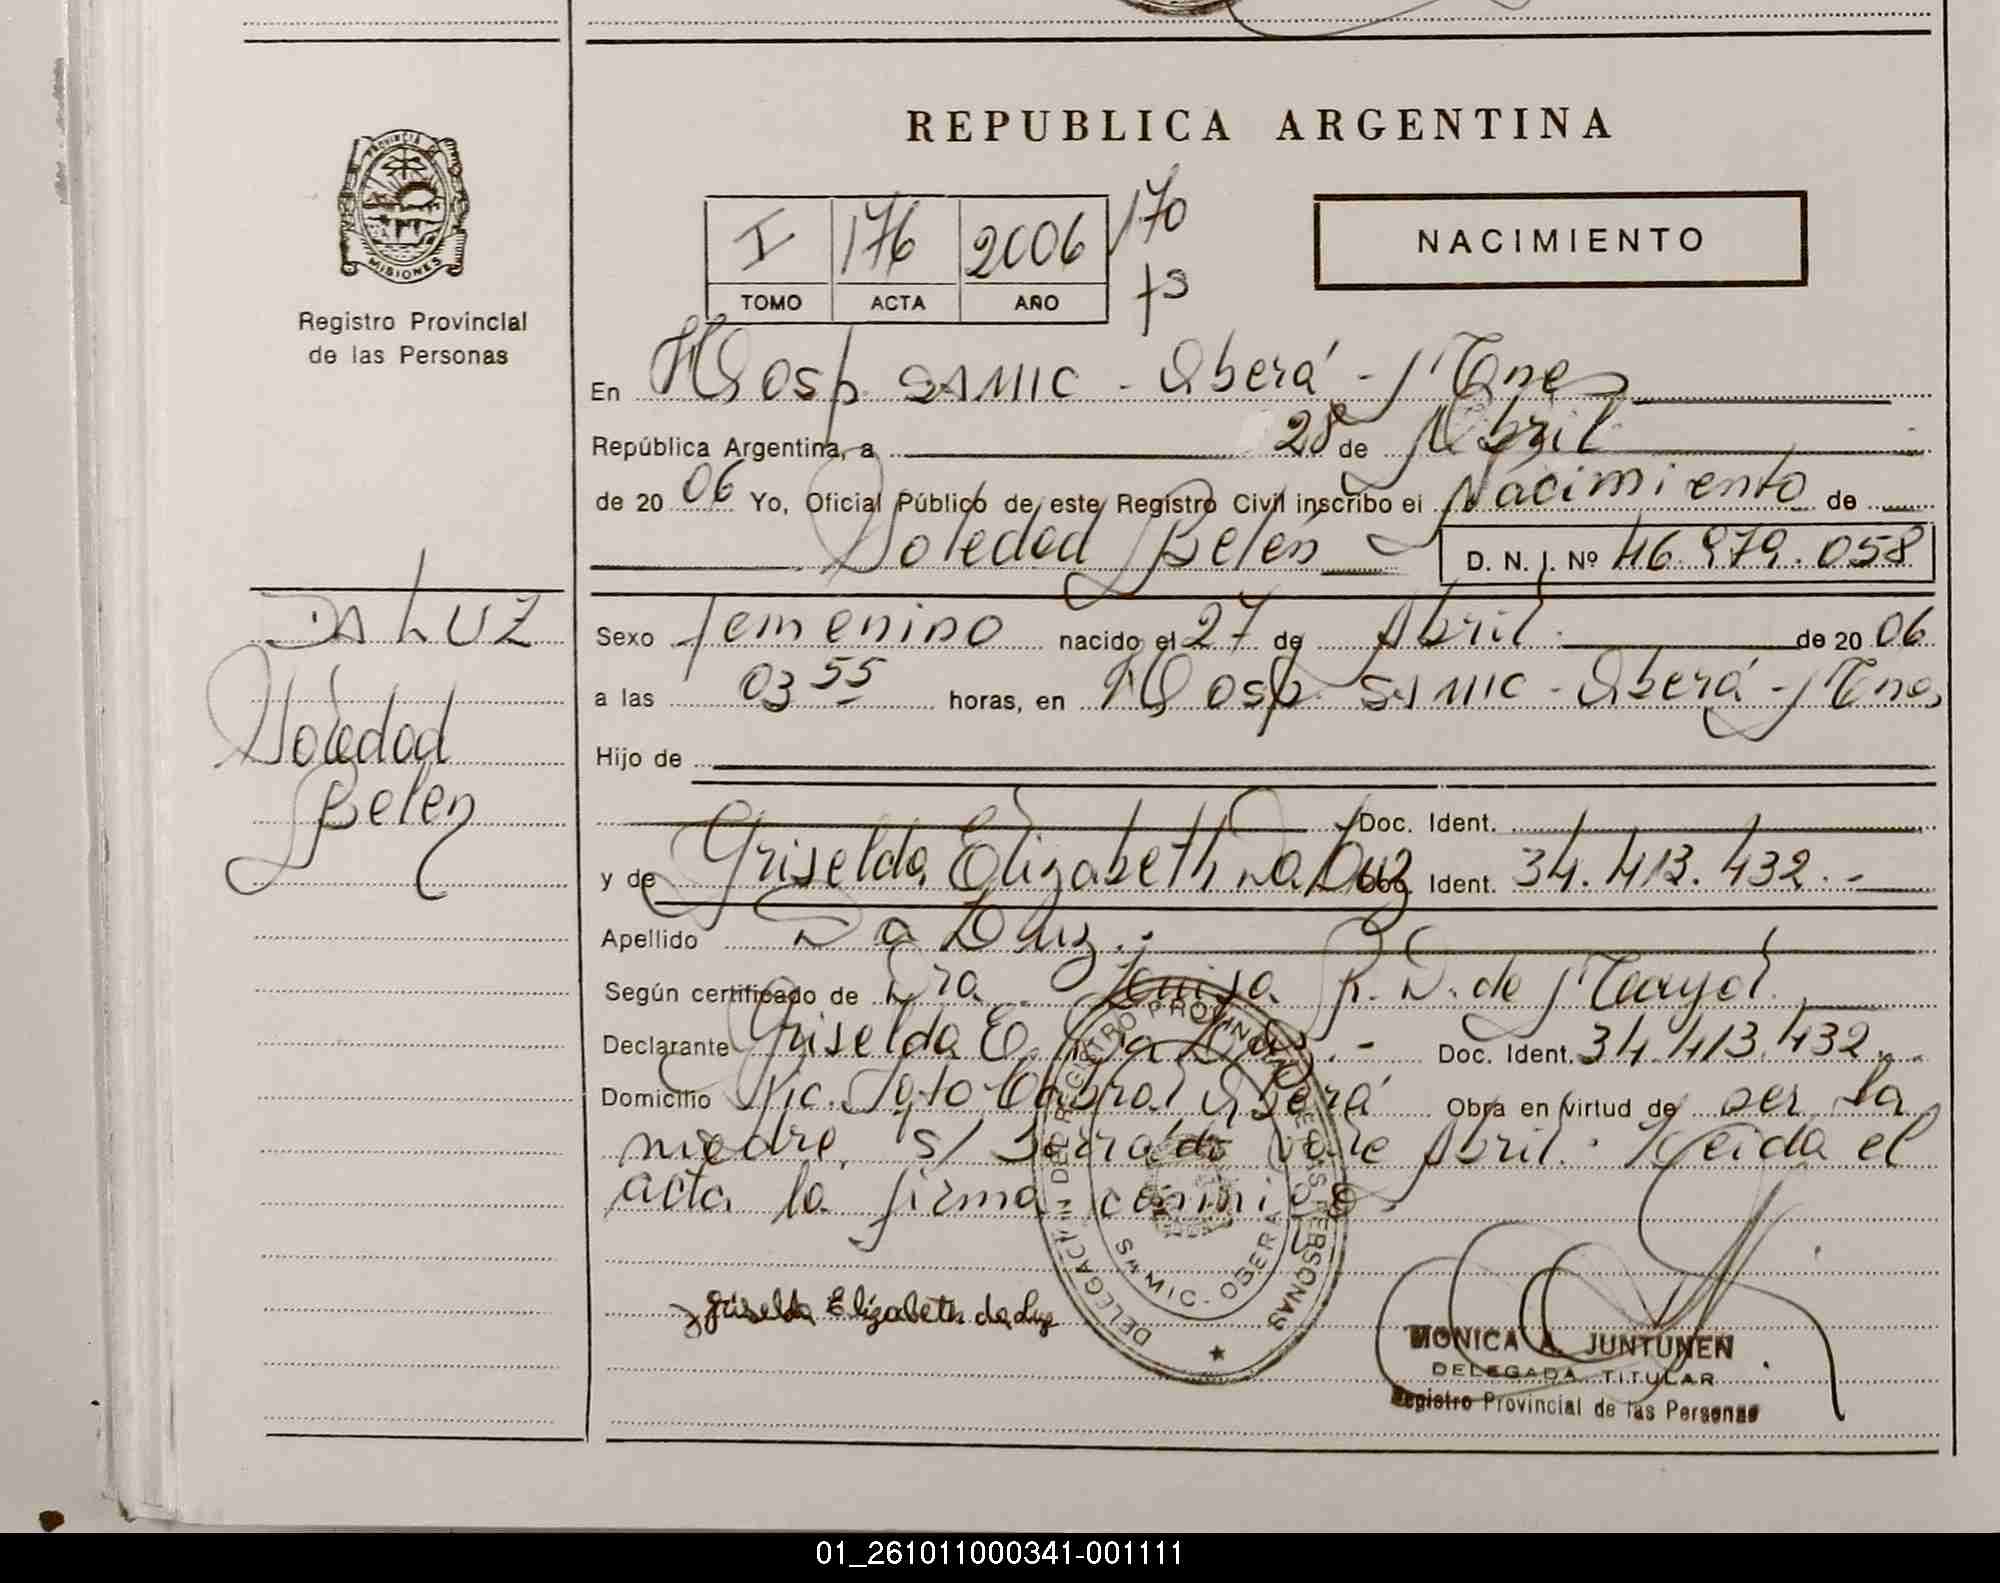 REPUBLICA ARGENTINA
PROVINCIA DE MISIONES
Registro Provincial
de las Personas
I 176 2006 170
TOMO ACTA AÑO fs
NACIMIENTO
En Hosp SAMIC - Oberá - Mnes
República Argentina, a 28 de Abril
de 20 06 Yo, Oficial Público de este Registro Civil inscribo el Nacimiento de
Soledad Belén D. N. I. Nº 46.979.058
DA LUZ
Soledad
Belen
Sexo femenino nacido el 27 de Abril de 20 06
a las 03 55 horas, en Hosp. SAMIC - Oberá - Mnes
Hijo de
Doc. Ident.
y de Griselda Elizabeth Da Luz Doc. Ident. 34.413.432.-
Apellido Da Luz.-
Según certificado de Dra. Luisa R. D. de Mayol.
Declarante Griselda E. Da Luz.- Doc. Ident. 34.413.432.-
Domicilio Sgto Cabral Oberá Obra en virtud de ser la
madre. s/ vale Abril.- Leida el
acta la firma conmigo
Griselda Elizabeth da Luz
DELEGACION DEL REGISTRO PROVINCIAL DE LAS PERSONAS
SAMIC - OBERA
MONICA A. JUNTUNEN
DELEGADA TITULAR
Registro Provincial de las Personas
01_261011000341-001111